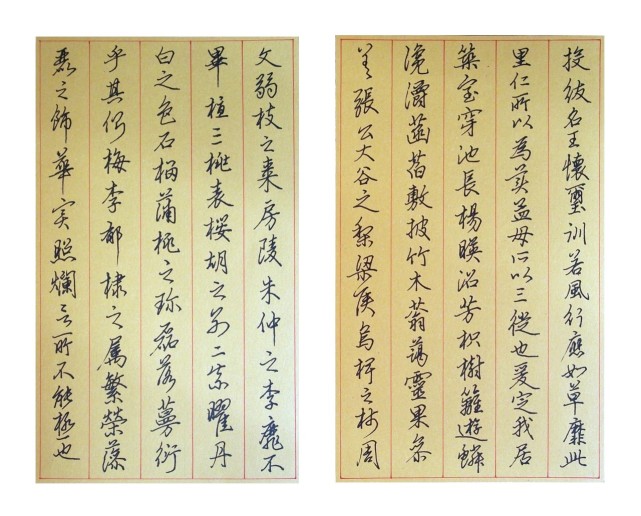 投紱名王懷璽訓若風行應如草靡此
里仁所以為美孟母所以三徙也爰定我居
築室穿池長楊暎沼芳枳樹籬遊鱗
瀺灂菡萏敷披竹木蓊藹靈果參
差張公大谷之梨梁侯烏椑之柿周
文弱枝之棗房陵朱仲之李靡不
畢植三桃表櫻胡之別二柰曜丹
白之色石榴蒲桃之珍磊落蔓衍
乎其側梅李郁棣之属繁榮藻
麗之飾華实照爛言所不能極也